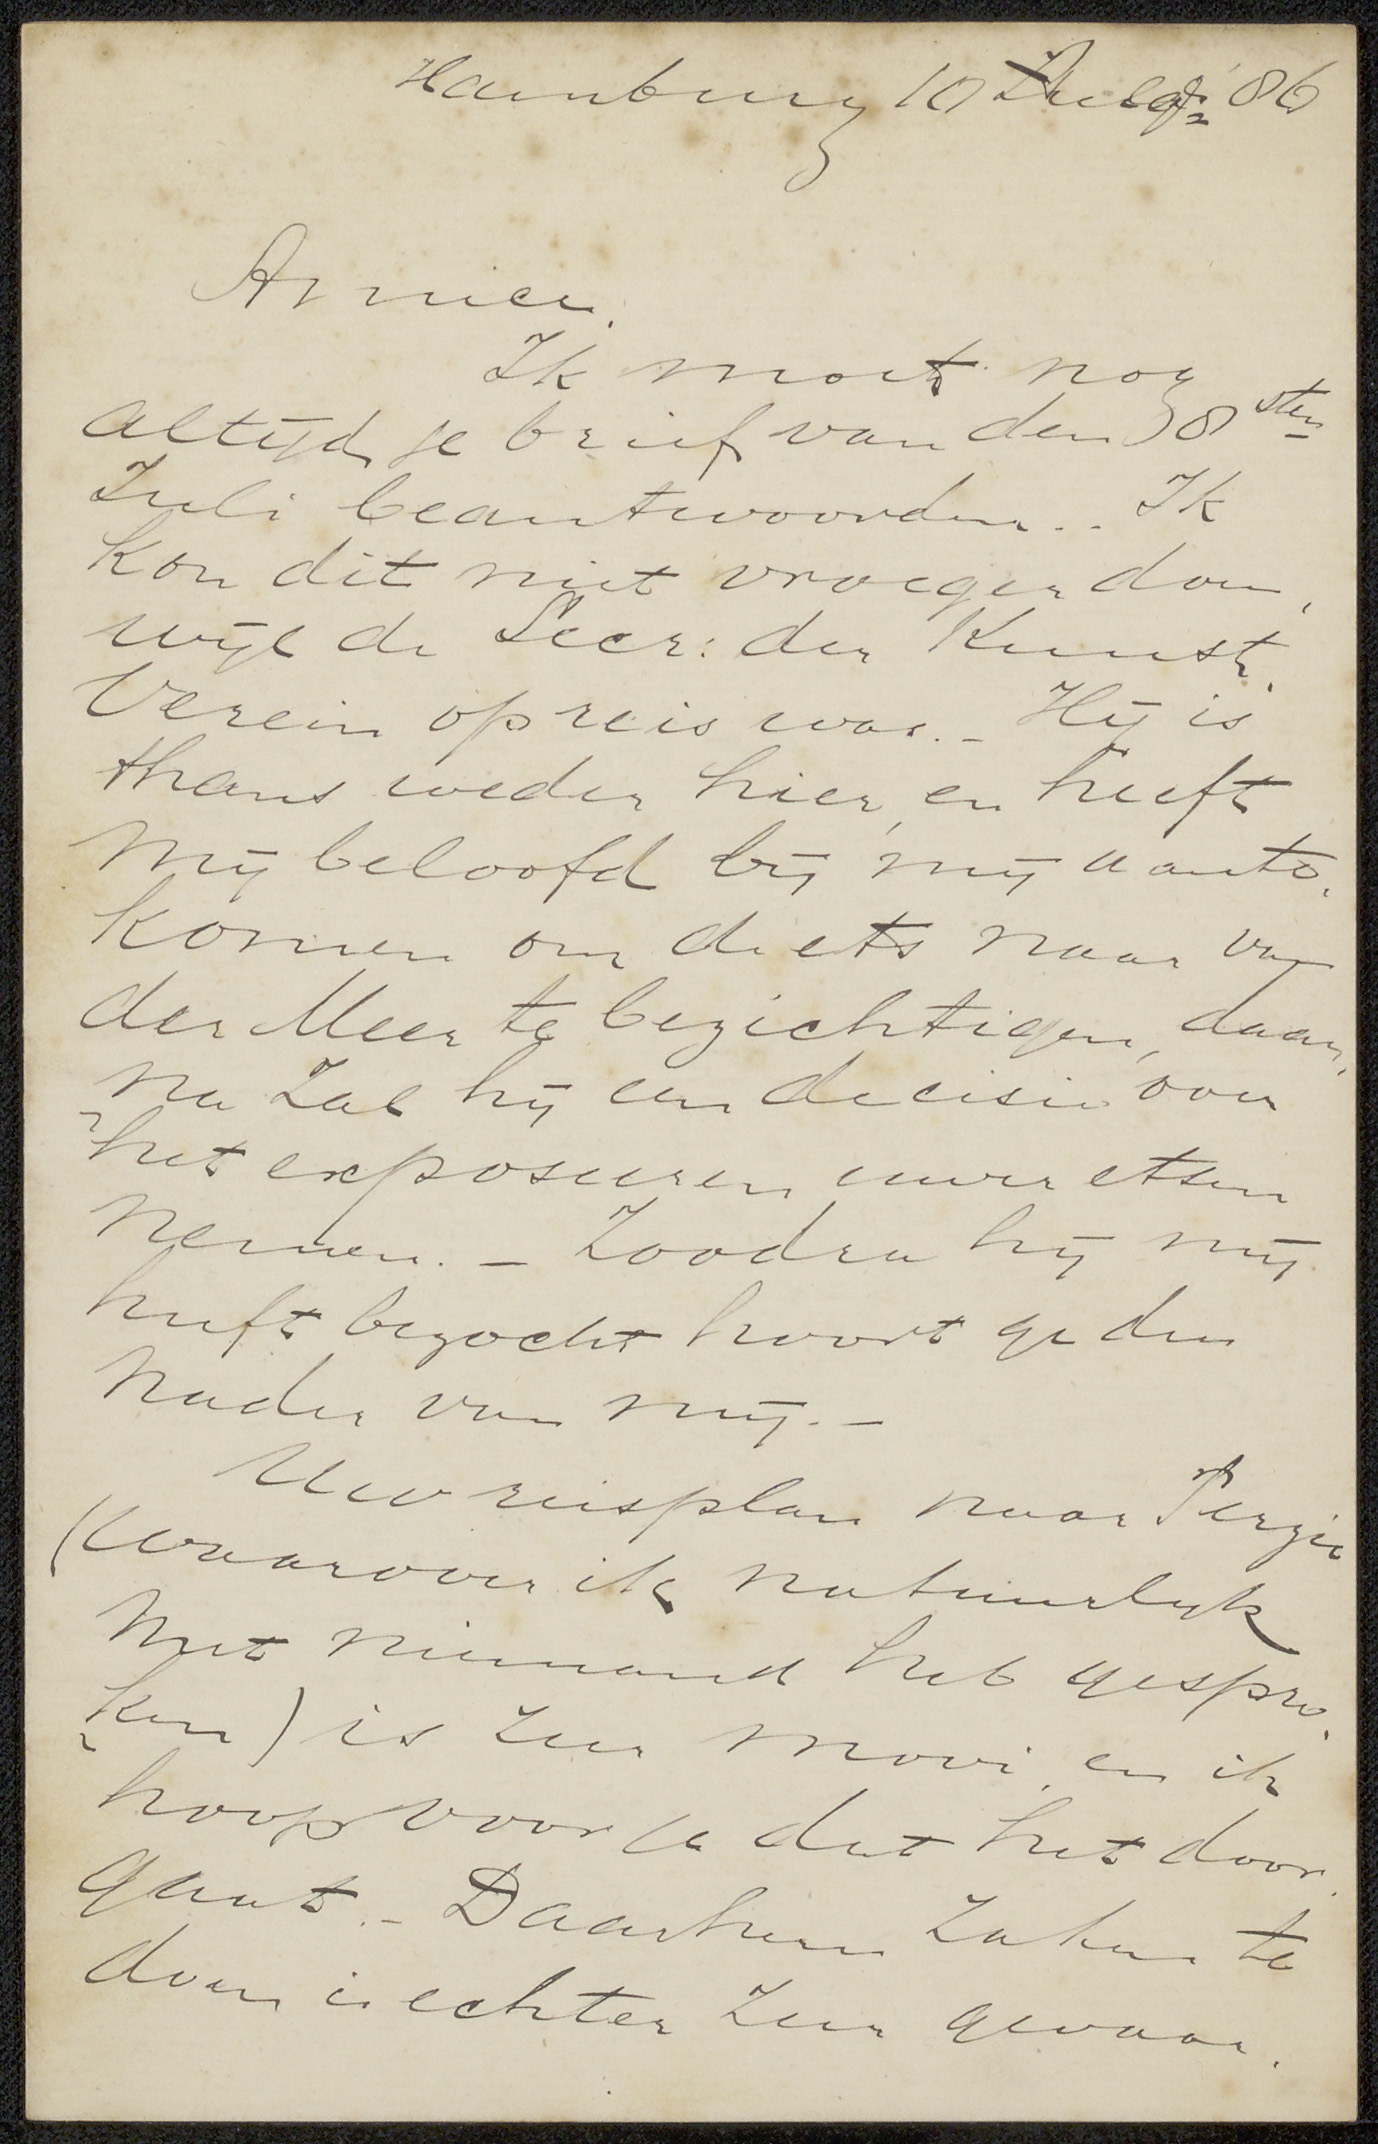 Hamburg 10 Aug: 86
Amice.
Ik moet nog
altijd je brief van den 8sten
Juli beantwoorden. - Ik
kon dit niet vroeger doen,
wijl de Secr: der Kunst-
Verein op reis was. - Hij is
thans weder hier, en heeft
mij beloofd bij mij aan te
komen om de ets naar van
der Meer te bezichtigen, daar-
na zal hij een decisie over
het exposeeren uwer etsen
nemen. - Zoodra hij mij
heeft bezocht hoort ge dus
nader van mij. -
Uw reisplan naar Perzie
(waarover ik natuurlijk
met niemand heb gespro-
ken) is zeer mooi, en ik
hoop voor je dat het door-
gaat. - Daarheen zaken te
doen is echter zeer gevaar-